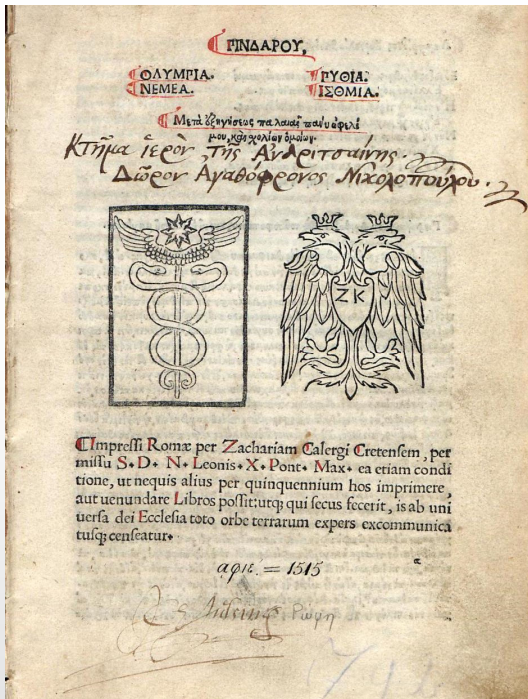 ΠΙΝΔΑΡΟΥ,
ΟΛΥΜΠΙΑ. ΠΥΘΙΑ.
ΝΕΜΕΑ. ΙΣΘΜΙΑ.
Μετὰ ἐξηγήσεως παλαιᾶς πάνυ ὠφελί
μου, καὶ σχολίων ὁμοίων.
Κτῆμα ἱερὸν τῆς Ανδριτσαίνης.
Δῶρον Ἀγαθόφρονος Νικολοπούλου.
ΖΚ
Impressi Romæ per Zachariam Calergi Cretensem, per
missu S. D. N. Leonis. X. Pont. Max. ea etiam condi
tione, ut nequis alius per quinquennium hos imprimere,
aut uenundare Libros possit: utq; qui secus fecerit, is ab uni
uersa dei Ecclesia toto orbe terrarum expers excommunica
tusq; censeatur.
αφιε´. = 1515
a
Ρώμη